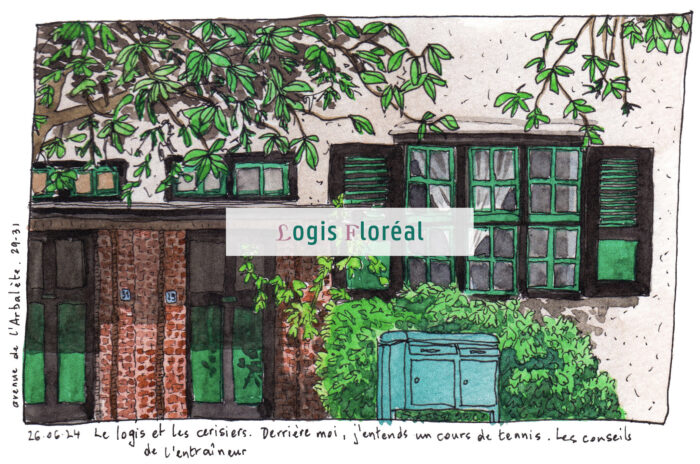 Logis Floréal
avenue de l'Arbalète. 29-31
26.06.24 Le logis et les cerisiers. Derrière moi, j'entends un cours de tennis. Les conseils
de l'entraîneur